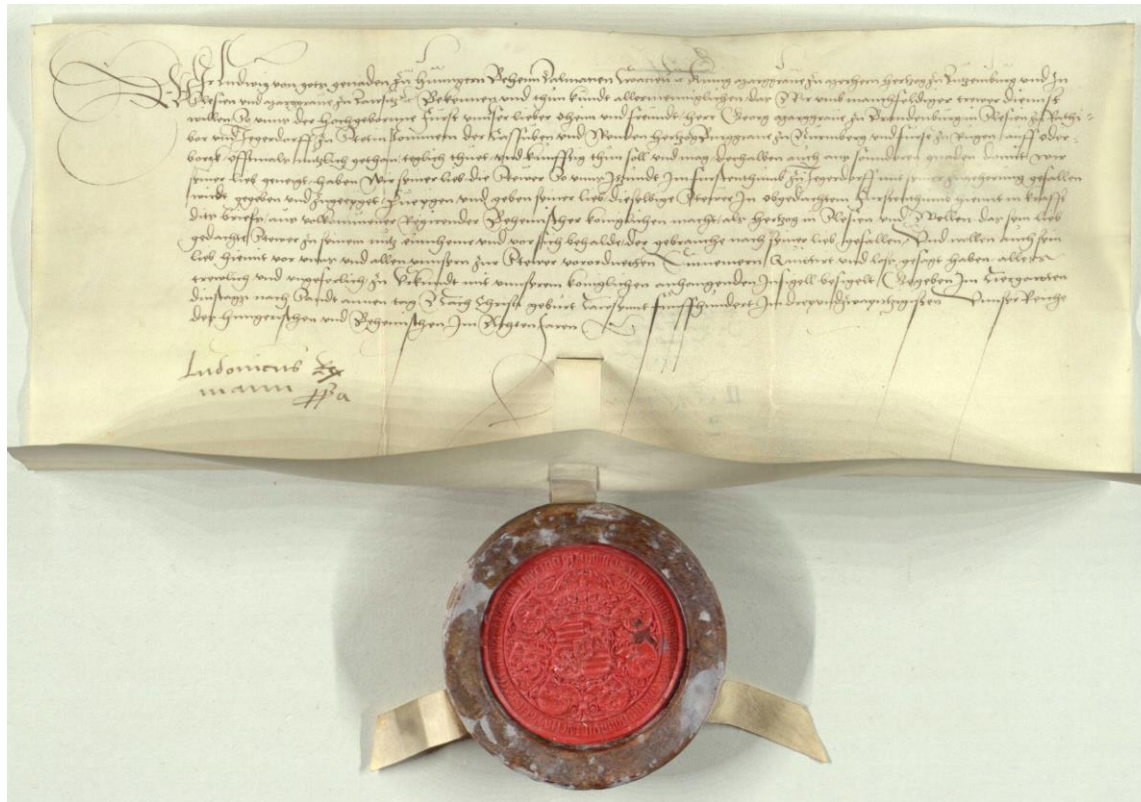 Wir Ludwig von gots genaden zu Hungern Behem Dalmatien Croatien etc Kunig Marggraue zu Merhern Hertzog zu Lutzenburg vnd In
Slesien vnd Marggraue zu Lausitz etc Bekennen vnd thun kundt allermenniglichen das Wir vmb manchfeldiger trewer dienst
willen So vnns der Hochgeborne Furst vnnser lieber Oheim vnd freundt Her Georg Marggraue zu Brandenburg in Slesien zu Rathi-
bor vnd Jegerdorff zu Stetin Pommern der Cassuben vnd Wenden Hertzog Burggraue zu Nurmberg vnd furst zu Rugen auff oder-
bergk offtmals nutzlich gethan teglich thuet vnd kunfftig thun soll vnd mag derhalben auch aus sonderen gnaden damit wir
seiner lieb geneigt haben Wir seiner lieb die Stewer So vnns Itzundt Im furstenthumb zu Jegerdorff mit seiner zugeherung gefallen
wirdt gegeben vnd zugeeyget zueygen vnd geben seiner lieb dieselbige Stewer In obgedachtem furstenthumb hiemit in krafft
dits briefs aus volkommener Regirender Behemischer koniglichen macht als Hertzog in Slesien vnd Wollen das sein lieb
gedachte Stewer zu seinem nutz einneme vnd vor sich behalde der gebrauche nach seiner lieb gefallen Vnd wollen auch sein
lieb hiemit vor vnns vnd allen vnsern zur Stewer vorordenten Einnemern Quittirt vnd loss gesagt haben alles
trewlich vnd vngeferlich zu Vrkundt mit vnnserem koniglichen anhangenden Insigell besigelt Gegeben Im Tiergarten
dinstags nach Sandt annen tag Nach Christi geburt Tawsent funffhundert Im drey vnd zwentzigisten Vnnser Reiche
des Hungerischen vnd Behemischen Im Achten Jaren
Ludouicus Rex
manu ppa